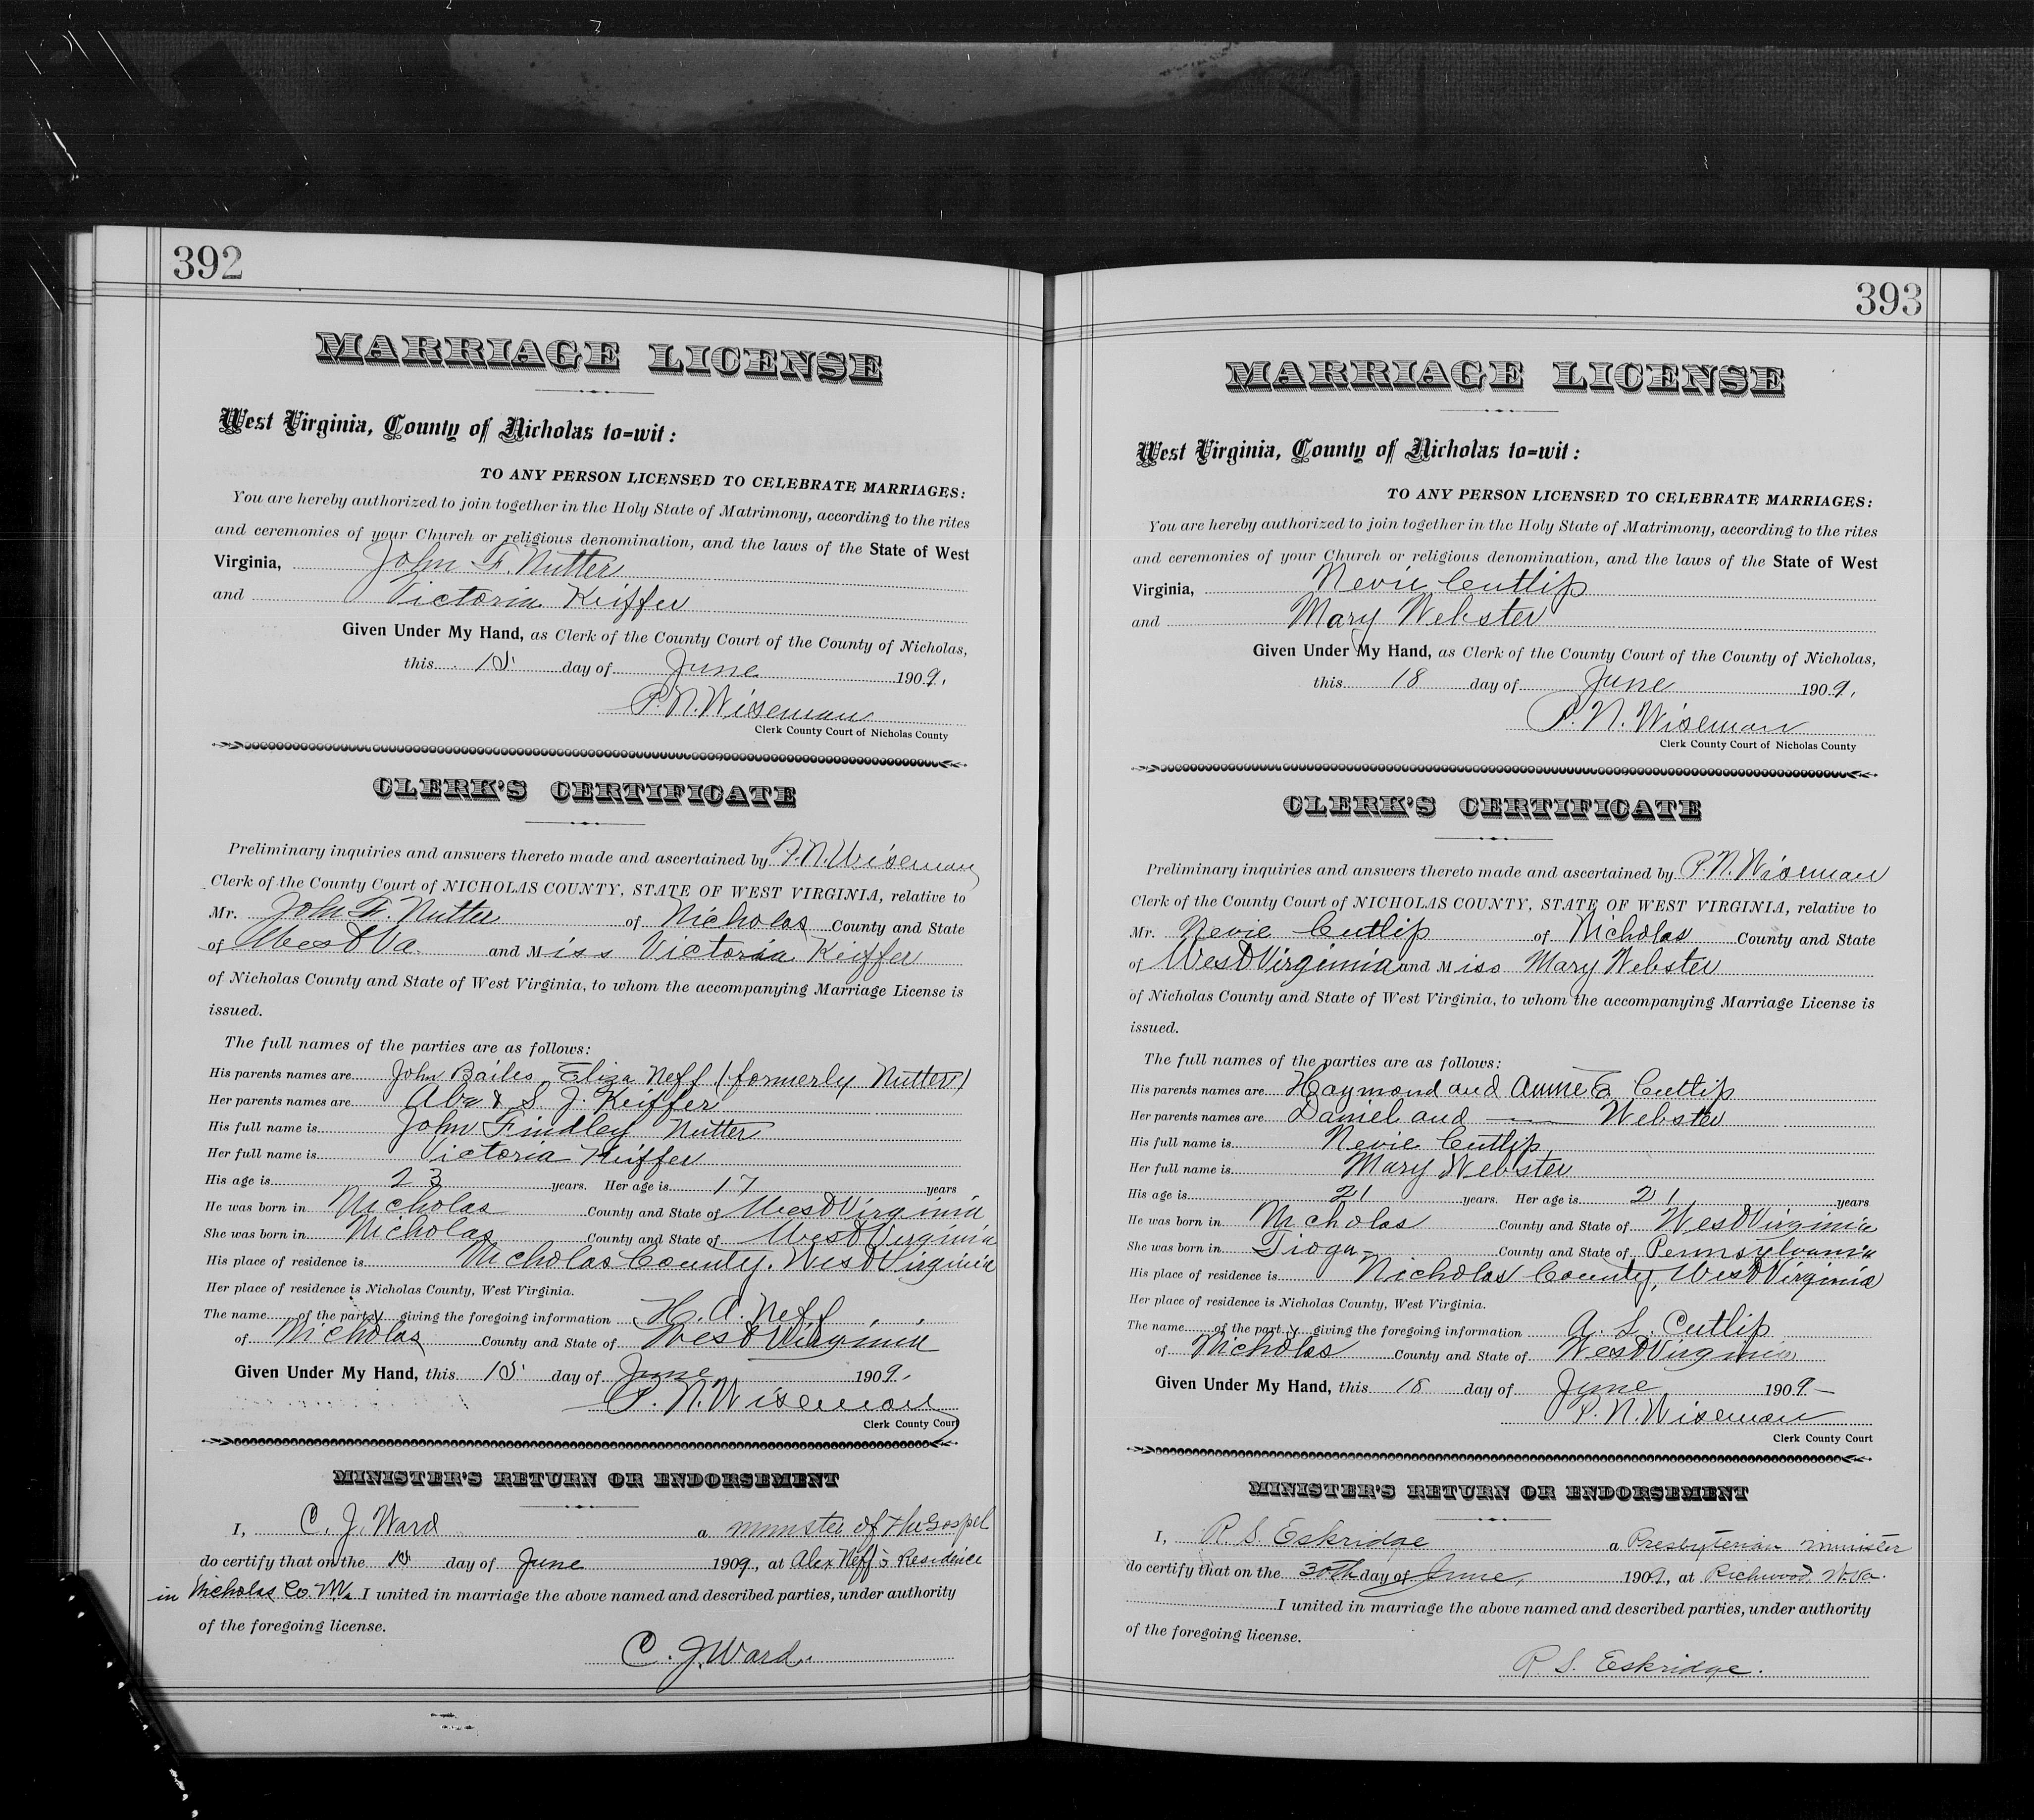 392
MARRIAGE LICENSE
West Virginia, County of Nicholas to-wit:
TO ANY PERSON LICENSED TO CELEBRATE MARRIAGES:
You are hereby authorized to join together in the Holy State of Matrimony, according to the rites
and ceremonies of your Church or religious denomination, and the laws of the State of West
Virginia, John F. Nutter
and Victoria Keiffer
Given Under My Hand, as Clerk of the County Court of the County of Nicholas,
this 15 day of June 1909.
P. N. Wiseman
Clerk County Court of Nicholas County
CLERK'S CERTIFICATE
Preliminary inquiries and answers thereto made and ascertained by P. N. Wiseman
Clerk of the County Court of NICHOLAS COUNTY, STATE OF WEST VIRGINIA, relative to
Mr. John F. Nutter of Nicholas County and State
of West Va. and Miss Victoria Keiffer
of Nicholas County and State of West Virginia, to whom the accompanying Marriage License is
issued.
The full names of the parties are as follows:
His parents names are John Bailes Eliza Neff (formerly Nutter)
Her parents names are & S. J. Keiffer
His full name is John Findley Nutter
Her full name is Victoria Keiffer
His age is 23 years. Her age is 17 years
He was born in Nicholas County and State of West Virginia
She was born in Nicholas County and State of West Virginia
His place of residence is Nicholas County, West Virginia
Her place of residence is Nicholas County, West Virginia.
The name of the party giving the foregoing information H. A. Neff
of Nicholas County and State of West Virginia
Given Under My Hand, this 15 day of June 1909.
P. N. Wiseman
Clerk County Court
MINISTER'S RETURN OR ENDORSEMENT
I, C. J. Ward a minister of the Gospel
do certify that on the 15 day of June 1909, at Alex Neff's Residence
in Nicholas Co W.Va. I united in marriage the above named and described parties, under authority
of the foregoing license.
C. J. Ward.
393
MARRIAGE LICENSE
West Virginia, County of Nicholas to-wit:
TO ANY PERSON LICENSED TO CELEBRATE MARRIAGES:
You are hereby authorized to join together in the Holy State of Matrimony, according to the rites
and ceremonies of your Church or religious denomination, and the laws of the State of West
Virginia, Nevie Cutlip
and Mary Webster
Given Under My Hand, as Clerk of the County Court of the County of Nicholas,
this 18 day of June 1909.
P. N. Wiseman
Clerk County Court of Nicholas County
CLERK'S CERTIFICATE
Preliminary inquiries and answers thereto made and ascertained by P. N. Wiseman
Clerk of the County Court of NICHOLAS COUNTY, STATE OF WEST VIRGINIA, relative to
Mr. Nevie Cutlip of Nicholas County and State
of West Virginia and Miss Mary Webster
of Nicholas County and State of West Virginia, to whom the accompanying Marriage License is
issued.
The full names of the parties are as follows:
His parents names are Haymond and Cutlip
Her parents names are Daniel and —— Webster
His full name is Nevie Cutlip
Her full name is Mary Webster
His age is 21 years. Her age is 21 years
He was born in Nicholas County and State of West Virginia
She was born in Tioga County and State of Pennsylvania
His place of residence is Nicholas County, West Virginia
Her place of residence is Nicholas County, West Virginia.
The name of the party giving the foregoing information A. L. Cutlip
of Nicholas County and State of West Virginia
Given Under My Hand, this 18 day of June 1909
P. N. Wiseman
Clerk County Court
MINISTER'S RETURN OR ENDORSEMENT
I, R. S. Eskridge a Presbyterian minister
do certify that on the 30th day of June, 1909, at Richwood W.Va.
I united in marriage the above named and described parties, under authority
of the foregoing license.
R. S. Eskridge.